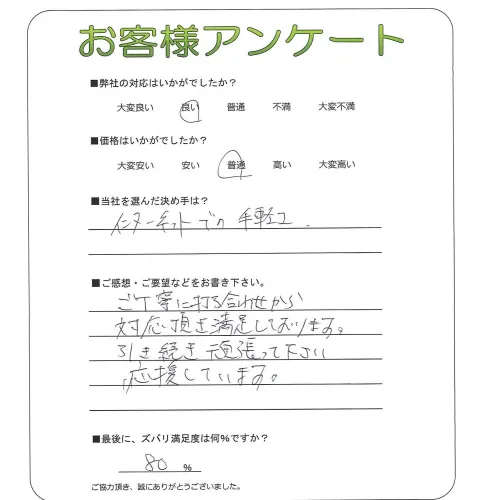 お客様アンケート
■弊社の対応はいかがでしたか？
大変良い 良い 普通 不満 大変不満
■価格はいかがでしたか？
大変安い 安い 普通 高い 大変高い
■当社を選んだ決め手は？
インターネットでの手軽エ.
■ご感想・ご要望などをお書き下さい。
ご丁寧に打ち合わせから
対応頂き満足しております。
引き続き頑張って下さい
応援しています。
■最後に、ズバリ満足度は何％ですか？
80 ％
ご協力頂き、誠にありがとうございました。